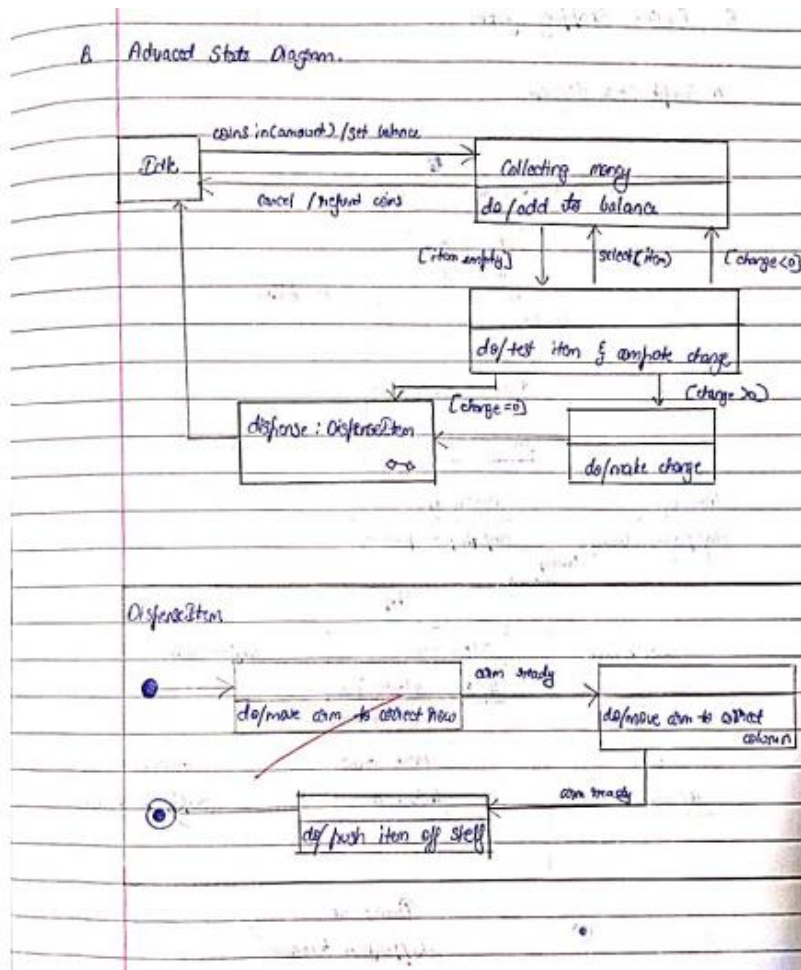 B Advaced State Diagram.
coins in(amount) / set balance
Idle
Collecting money
cancel / refund coins
do/add to balance
[item empty]
select(item)
[change<0]
do/test item & compute change
[change=0]
[change>0]
dispense : DispenseItem
do/make change
DispenseItem
arm ready
do/move arm to correct row
do/move arm to correct
column
arm ready
do/push item off shelf